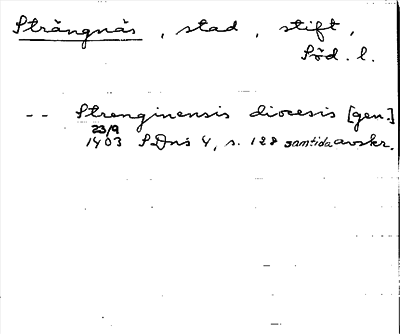 Strängnäs, stad, stift,
Söd. l.
-- Strenginensis diocesis [gen.]
23/9
1403 SDns 4, s. 128 samtida avskr.